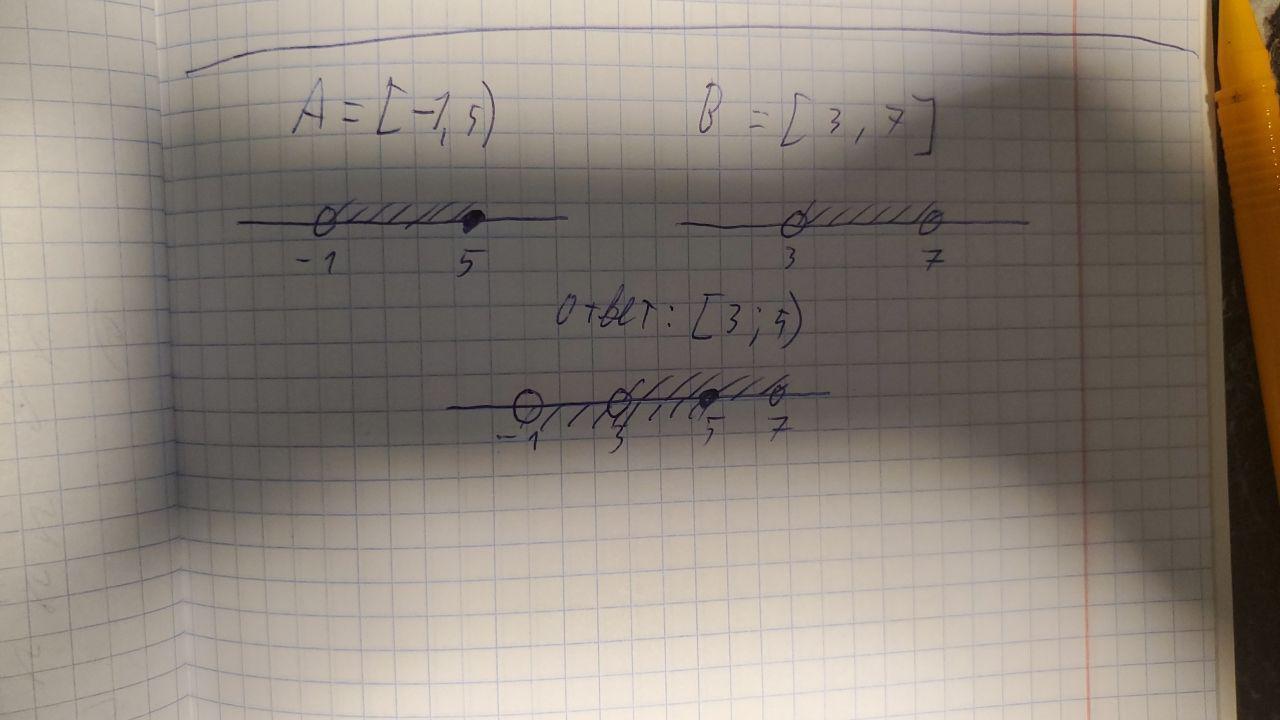 A = [-1, 5) B = [3, 7]
-1 5 3 7
Ответ: [3; 5)
-1 3 5 7